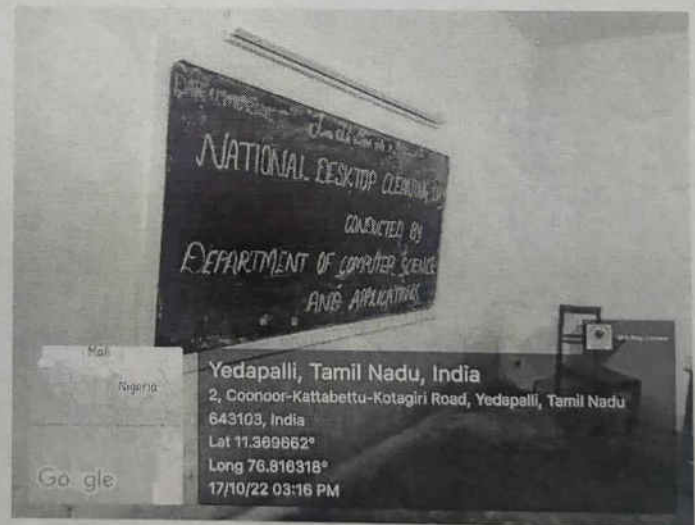 NATIONAL DESKTOP CLEANING DAY
CONDUCTED BY
DEPARTMENT OF COMPUTER SCIENCE
AND APPLICATIONS
Mali
Nigeria
Google
Yedapalli, Tamil Nadu, India
2, Coonoor-Kattabettu-Kotagiri Road, Yedapalli, Tamil Nadu
643103, India
Lat 11.369662°
Long 76.816318°
17/10/22 03:16 PM